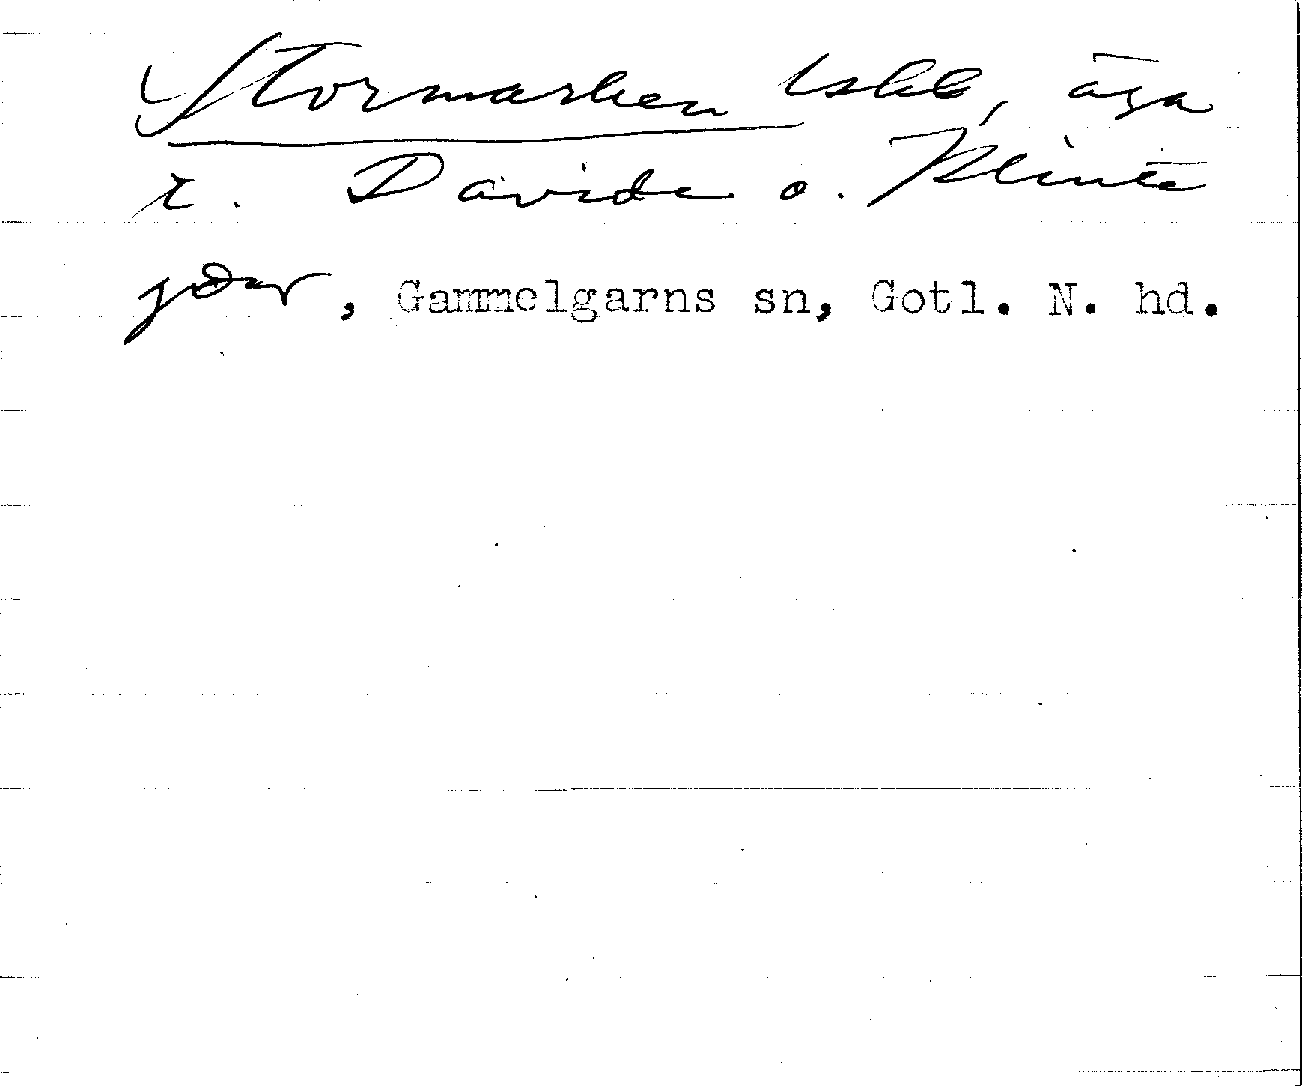 Stormarken Iskb, äga
t. Davide o. Klinte
gdar, Gammelgarns sn, Gotl. N. hd.